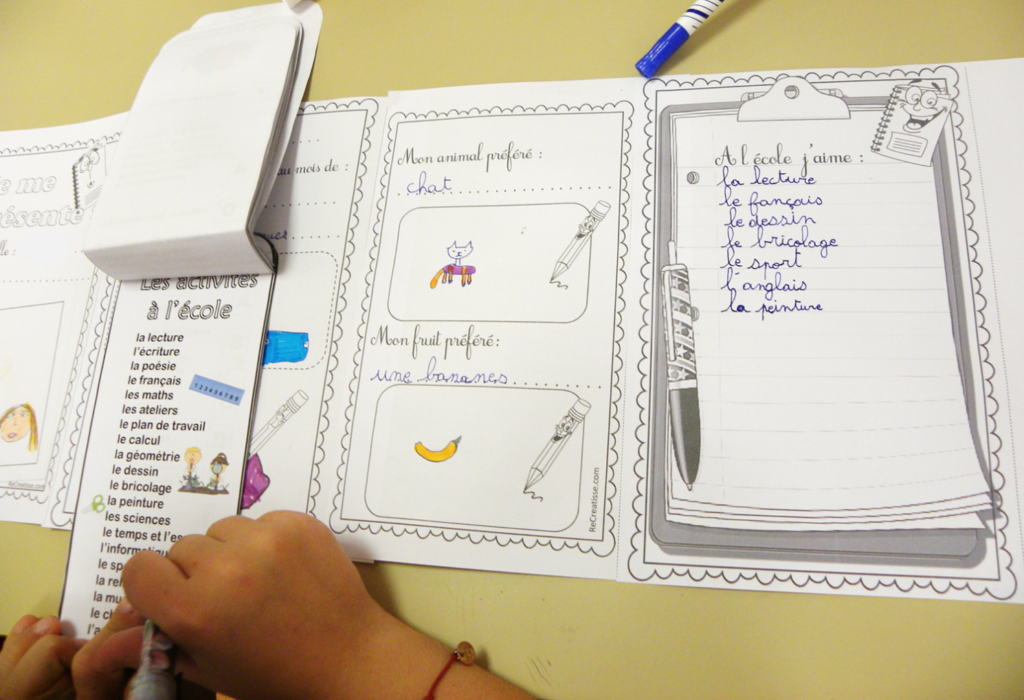 e me
ésente
lle :
ReCreatisse.com
au mois de :
Les activités
à l'école
la lecture
l'écriture
la poésie
le français
les maths
les ateliers
le plan de travail
le calcul
la géométrie
le dessin
le bricolage
la peinture
les sciences
le temps et l'es
l'informatique
le sp
la rel
la mu
le ch
l'a
123456789
Mon animal préféré :
chat
Mon fruit préféré :
une bananers
ReCreatisse.com
A l'école j'aime :
la lecture
le fançais
le dessin
le bricolage
le sport
l'anglais
la peinture